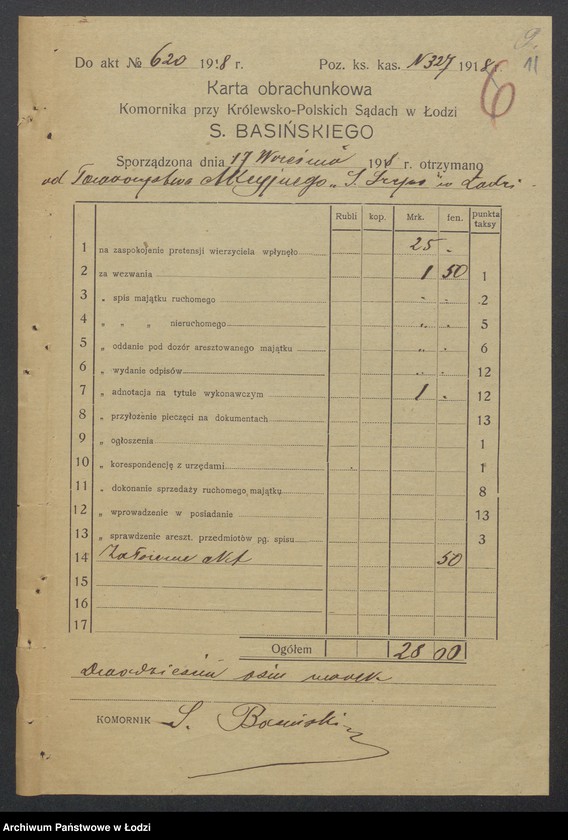 9.
11
6
Do akt № 620 1918 r. Poz. ks. kas. N 327 1918 r.
Karta obrachunkowa
Komornika przy Królewsko-Polskich Sądach w Łodzi
S. BASIŃSKIEGO
Sporządzona dnia 17 Września 1918 r. otrzymano
od Towarzystwa Akcyjnego „ w Łodzi.
Rubli kop. Mrk. fen. punkta taksy
1 na zaspokojenie pretensji wierzyciela wpłynęło 25 -
2 za wezwania 1 50 1
3 „ spis majątku ruchomego „ „ 2
4 „ „ „ nieruchomego „ „ 5
5 „ oddanie pod dozór aresztowanego majątku „ „ 6
6 „ wydanie odpisów „ „ 12
7 „ adnotacja na tytule wykonawczym 1 - 12
8 „ przyłożenie pieczęci na dokumentach 13
9 „ ogłoszenia 1
10 „ korespondencję z urzędami 1
11 „ dokonanie sprzedaży ruchomego majątku 8
12 „ wprowadzenie w posiadanie 13
13 „ sprawdzenie areszt. przedmiotów pg. spisu 3
14 Założenie akt 50
15
16
17
Ogółem 28 00
Dwadzieścia osiem marek
KOMORNIK S. Basiński
Archiwum Państwowe w Łodzi